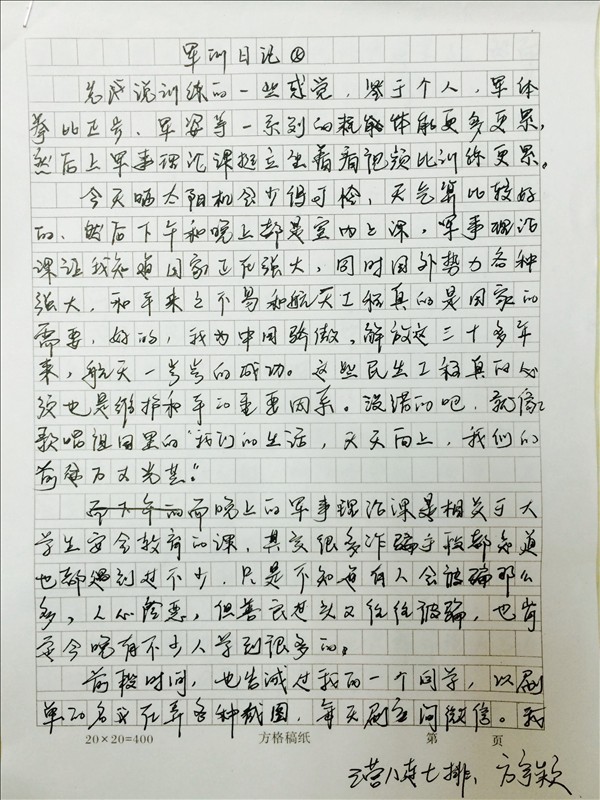 军训日记④
若能说训练的一些感觉,鉴于个人,军体
拳比正步、军姿等一系列的耗能体能更多更累,
然后上军事理论课挺立坐着看视频比训练更累。
今天晒太阳机会少得可怜,天气算比较好
的、然后下午和晚上都是室内上课,军事理论
课让我知道国家正在强大,同时国外势力各种
强大,和平来之不易和航天工程真的是国家的
需要,好的,我为中国骄傲。解放这三十多年
来,航天一号号的成功。这些民生工程真的必
须也是维护和平的重要因素。没错的吧,就像
歌唱祖国里的“我们的生活,天天向上,我们的
前途万丈光芒。”
而晚上的军事理论课是相关于大
学生安全教育的课,其实很多诈骗手段都知道
也都遇到过不少,只是不知道有人会被骗那么
多,人心险恶,但善良过头又往往被骗,也肯
定今晚有不少人学到很多的。
前段时间,也告诫过我的一个同学,以刷
单的名义在弄各种截图,每天刷空间微信。我
20×20=400 方格稿纸 第 页
三营八连七排、方宇颖